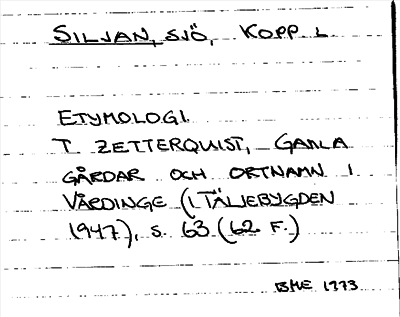 SILJAN, SJÖ, KOPP. L.
ETYMOLOGI.
T. ZETTERQUIST, GAMLA
GÅRDAR OCH ORTNAMN I
VÅRDINGE (I TÄLJEBYGDEN
1947), S. 63 (62 F.)
BME 1973